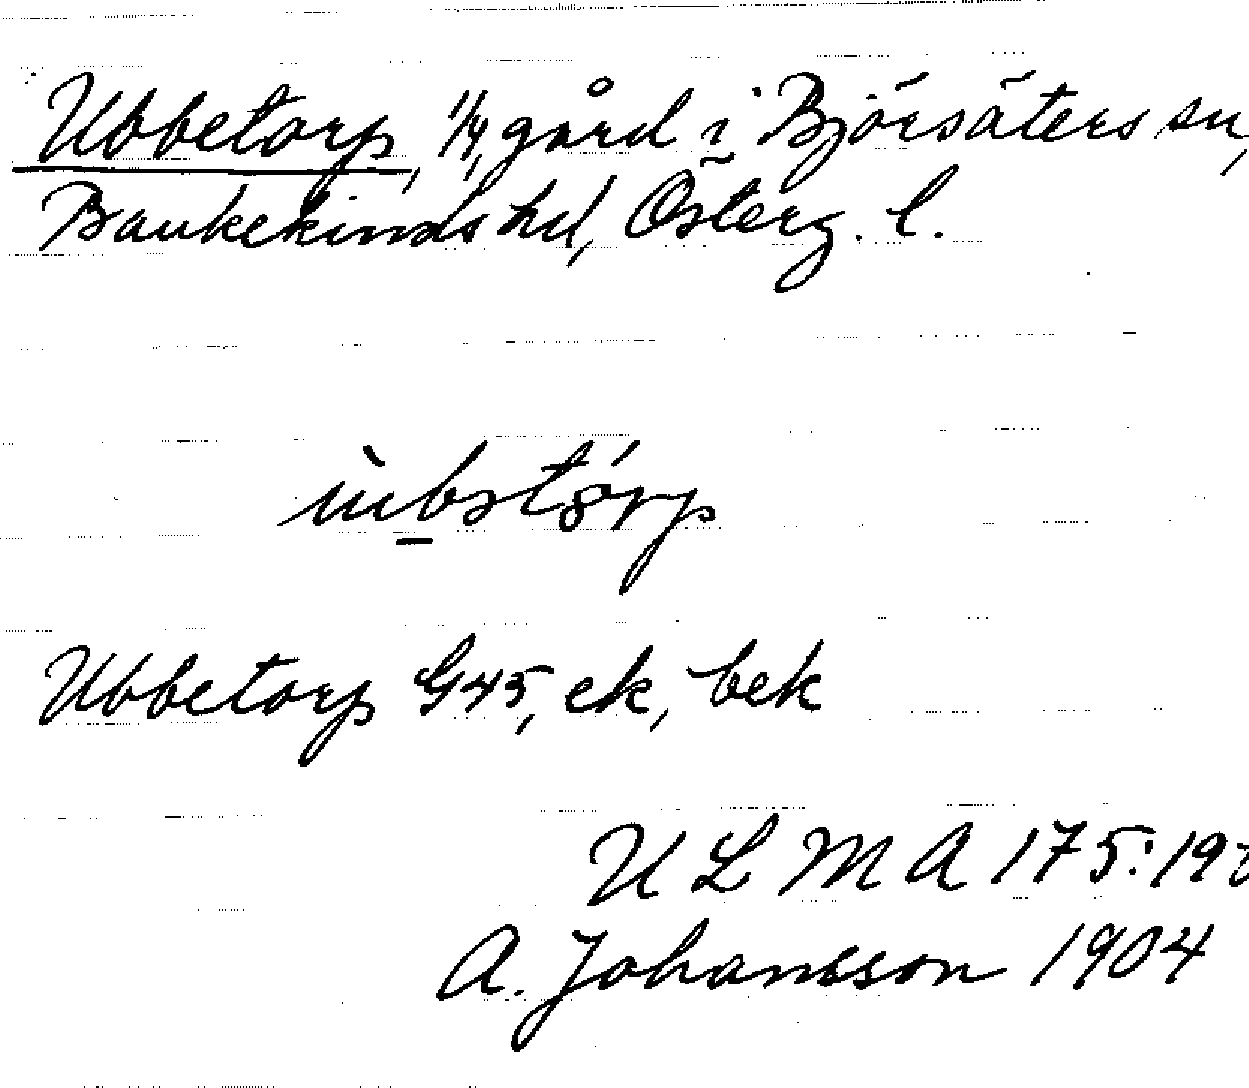 Ubbetorp, 1/4, gård i Björsäters sn,
Bankekinds hd, Österg. l.
Ubbetorp G45, ek, bek
U L M A 175:19
A. Johansson 1904